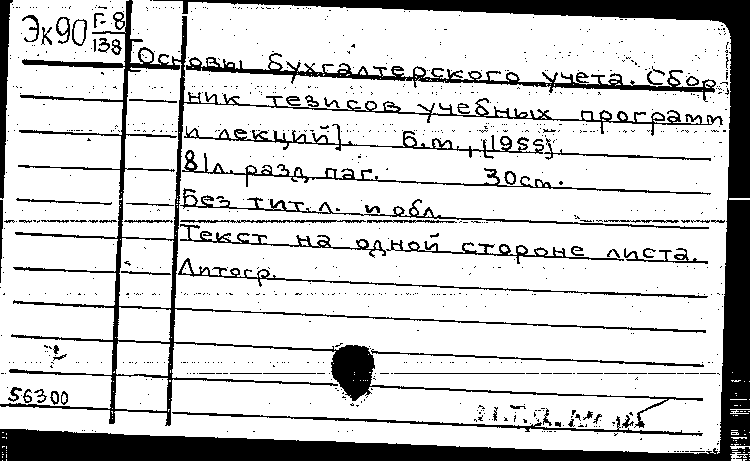 Эк90 Г-8
138
[Основы бухгалтерского учета. Сбор
ник тезисов учебных программ
и лекций]. Б.м., [1955].
81л. разд. паг. 30см.
Без тит. л. и обл.
Текст на одной стороне листа.
Литогр.
56300